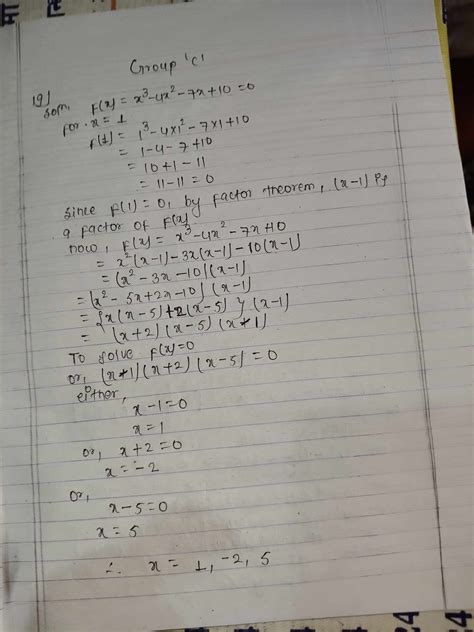 Group 'c'
19)
Soln, F(x) = x³-4x²-7x+10 = 0
for x = 1
f(1) = 1³-4×1²-7×1+10
= 1-4-7+10
= 10+1-11
= 11-11 = 0
Since F(1) = 0, by factor theorem, (x-1) is
a factor of F(x)
now, F(x) = x³-4x²-7x+10
= x²(x-1)-3x(x-1)-10(x-1)
= (x²-3x-10)(x-1)
= (x²-5x+2x-10)(x-1)
= {x(x-5)+2(x-5)}(x-1)
= (x+2)(x-5)(x-1)
To solve F(x)=0
or, (x-1)(x+2)(x-5) = 0
either,
x-1=0
x=1
or, x+2=0
x=-2
or,
x-5=0
x=5
∴ x = 1, -2, 5